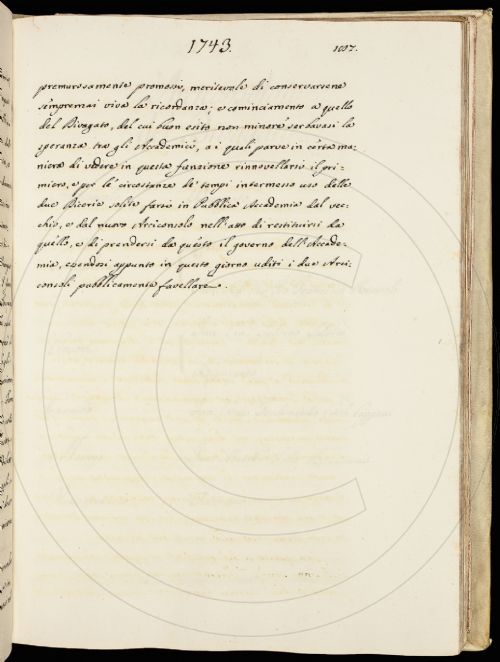 1743.
1017.
premurosamente promosso, meritevole di conservarsene
sempremai viva la ricordanza; e cominciamento a quello
del Bisogato, del cui buon esito non minore serbavasi la
speranza tra gli Accademici, a i quali parve in certa ma:
niera di vedere in questa funzione rinnovellarsi il pri:
miero, e per le circostanze de' tempi intermesso uso delle
due Dicerie solite farsi in Pubblica Accademia dal vec:
chio, e dal nuovo Arciconsolo nell'atto di restituirsi da
quello, e di prendersi da questo il governo dell'Accade:
mia, essendosi appunto in questo giorno uditi i due Arci:
consoli pubblicamente favellare.